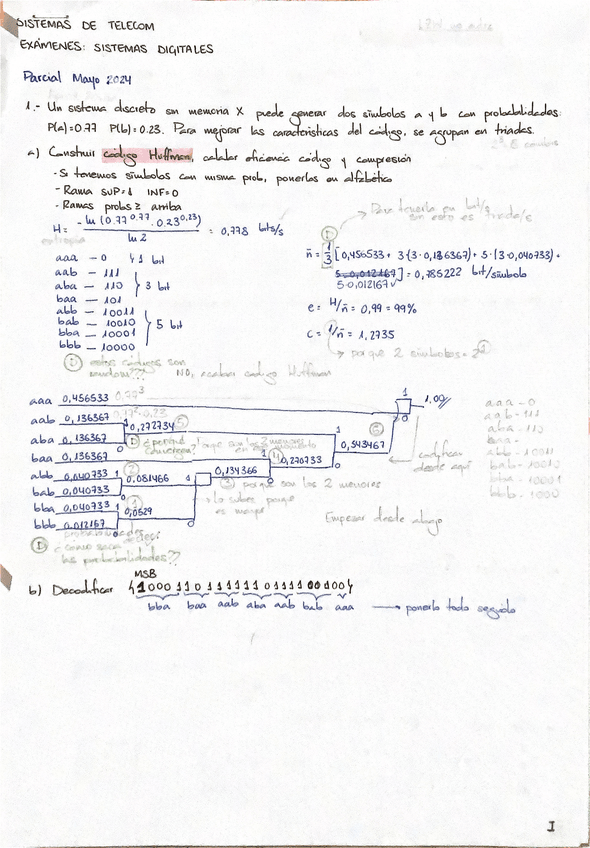 SISTEMAS DE TELECOM
EXÁMENES: SISTEMAS DIGITALES
Parcial Mayo 2024
1.- Un sistema discreto sin memoria X puede generar dos símbolos a y b con probabilidades:
P(a)=0.77 P(b)=0.23. Para mejorar las características del código, se agrupan en triadas.
a) Construir código Huffman, calcular eficiencia código y compresión
- Si tenemos símbolos con misma prob, ponerlos en alfabético
- Rama SUP=1 INF=0
- Ramas probs ≥ arriba
H = -ln (0.77^0.77 · 0.23^0.23) / ln 2 = 0,778 bits/s
entropía
Para tenerla en bit/s
sin esto es triada/s
n̄ = 1/3 [0,456533 + 3(3·0,136367) + 5·(3·0,040733) +
5·0,012167] = 0,785222 bit/símbolo
5·0,012167
e = H/n̄ = 0,99 = 99%
c = 1/n̄ = 1,2735
porque 2 símbolos = 2^1
aaa — 0 1 bit
aab — 111
aba — 110 3 bit
baa — 101
abb — 10011
bab — 10010 5 bit
bba — 10001
bbb — 10000
estos códigos son
random?? NO, acabar código Huffman
aaa 0,456533 0,77³ 1 1,00
aab 0,136367 1 0,272734 1
aba 0,136367 0 ¿porqué converge? porque son los 2 menores
baa 0,136367 1 0,270733 0 0,543467 0
abb 0,040733 1 0,081466 1 0,134366 0
bab 0,040733 0 porque son los 2 menores
bba 0,040733 1 0,0529 0 lo subes porque
es mayor
bbb 0,012167 0
probabilidades
¿cómo saca
las probabilidades??
Empezar desde abajo
codificar
desde aquí
aaa - 0
aab - 111
aba - 110
baa -
abb - 10011
bab - 10010
bba - 10001
bbb - 1000
MSB
b) Decodificar 1000110111111101111001001
bba baa aab aba aab bab aaa → ponerlo todo seguido
I